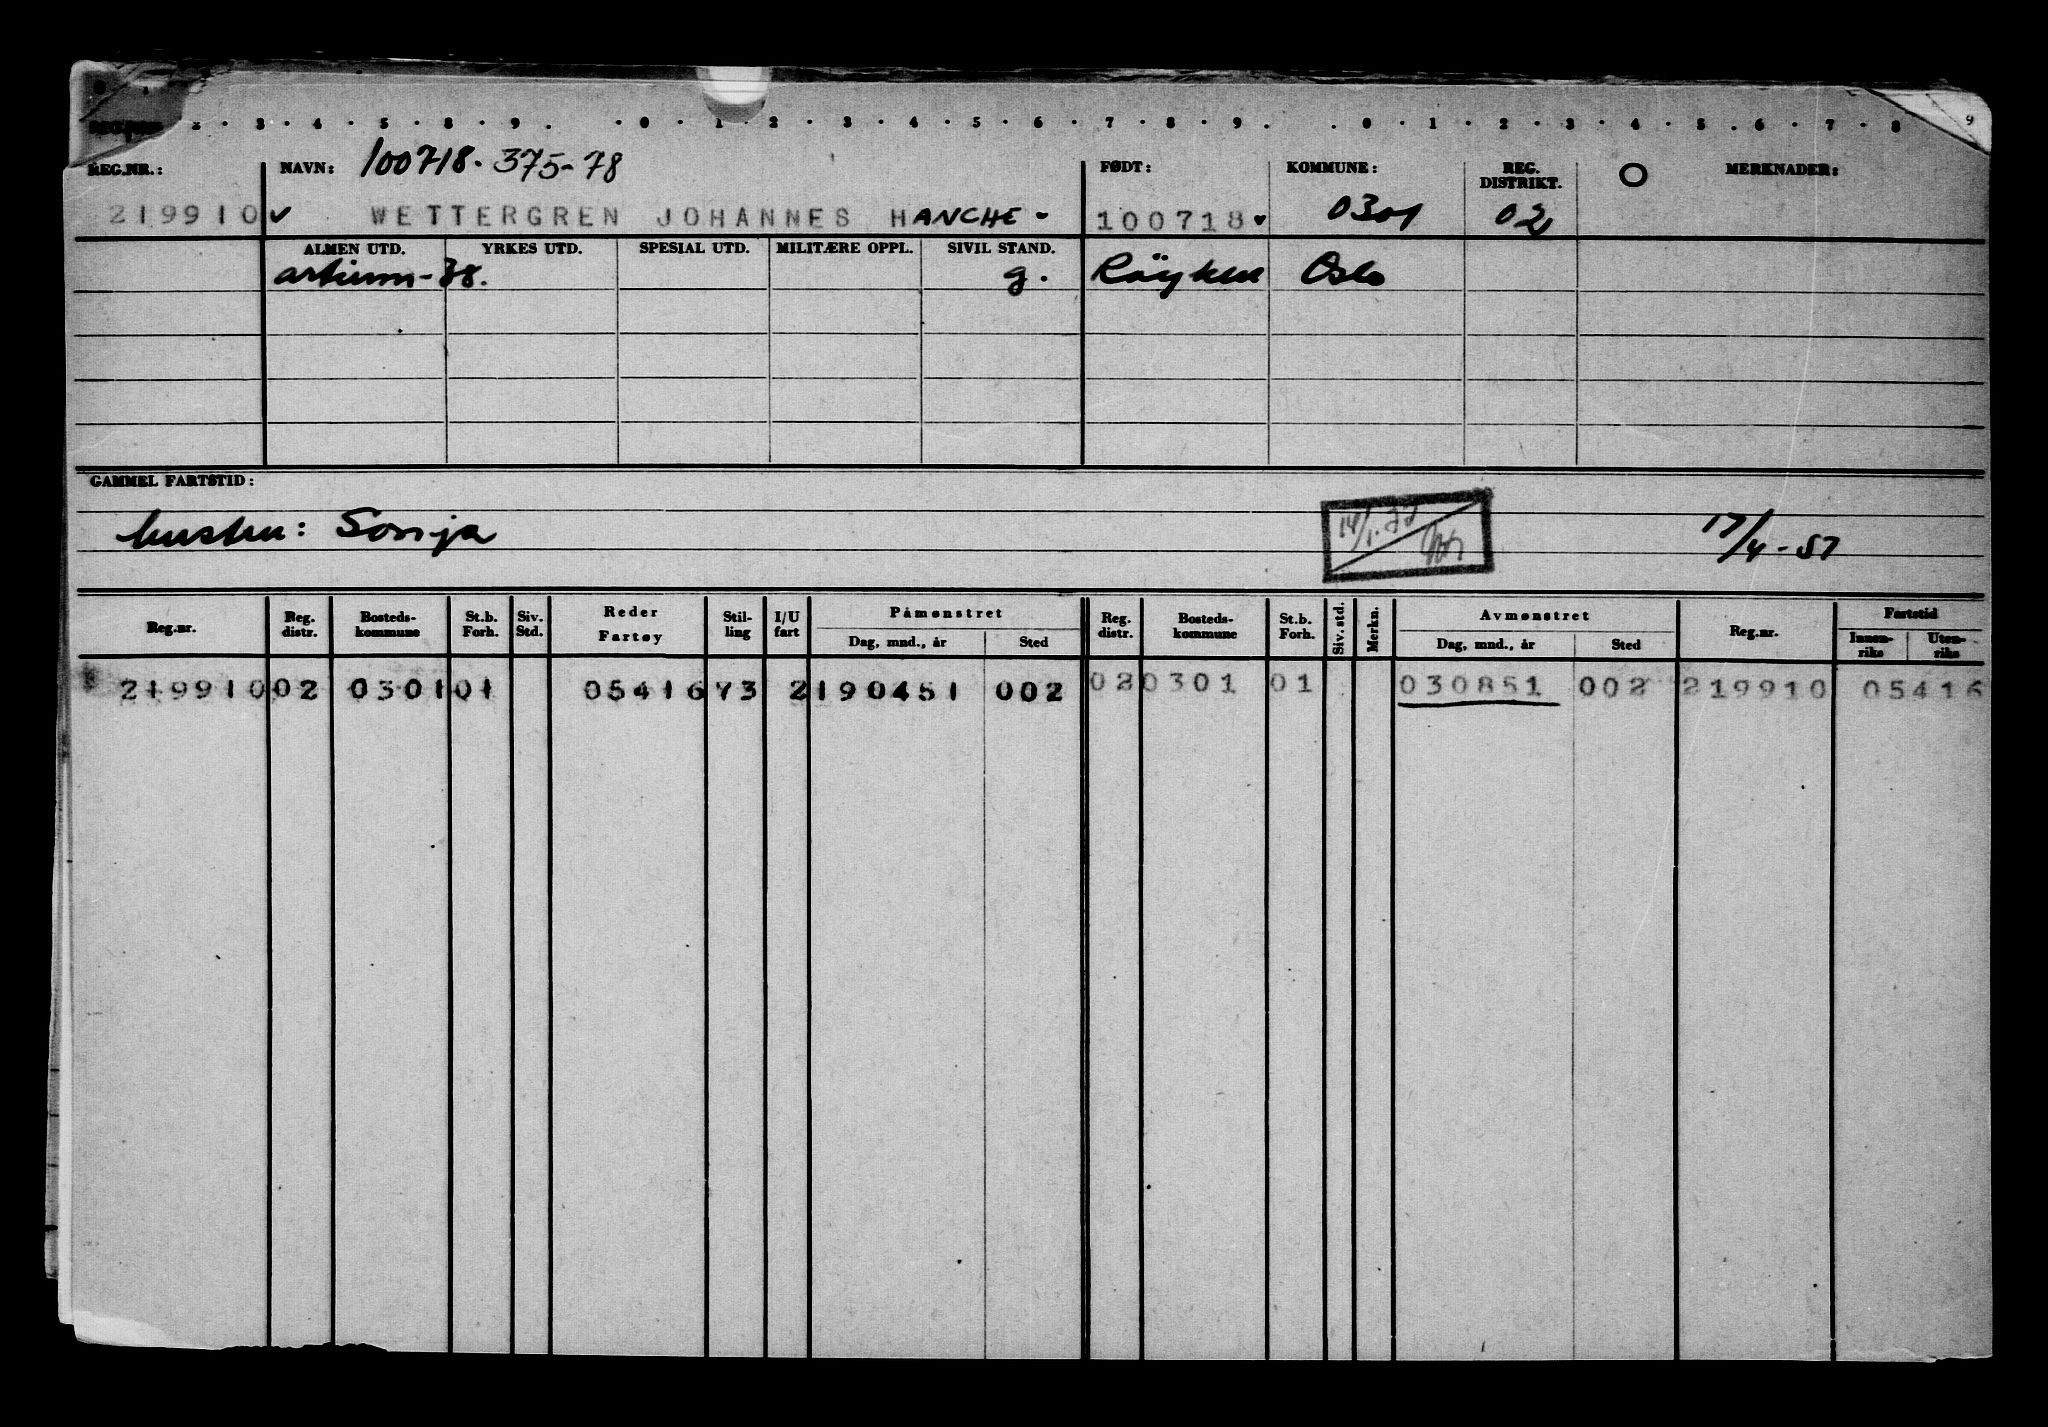 2 · 3 · 4 · 5 · 8 · 9 . · 0 · 1 · 2 · 3 · 4 · 5 · 6 · 7 · 8 · 9 . . 0 · 1 · 2 · 3 · 4 · 5 . 6 · 7 · 8 9
REG.NR.: NAVN: 100718. 375-78 FØDT: KOMMUNE: REG. DISTRIKT. O MERKNADER:
219910 ✓ WETTERGREN JOHANNES HANCHE - 100718 0301 02
ALMEN UTD. YRKES UTD. SPESIAL UTD. MILITÆRE OPPL. SIVIL STAND.
artium-38. g. Röyken Oslo
GAMMEL FARTSTID:
hustru: Sonja 17/4-57
Reg.nr. Reg. distr. Bosteds- kommune St.b. Forh. Siv. Std. Reder Fartøy Stil- ling I/U fart Påmønstret Reg. distr. Bosteds- kommune St.b. Forh. Siv. std. Merkn. Avmønstret Reg.nr. Fartstid
Dag, mnd., år Sted Dag, mnd., år Sted Innen- riks Uten- riks
219910 02 0301 01 05416 73 2 190451 002 02 0301 01 030851 002 219910 05416